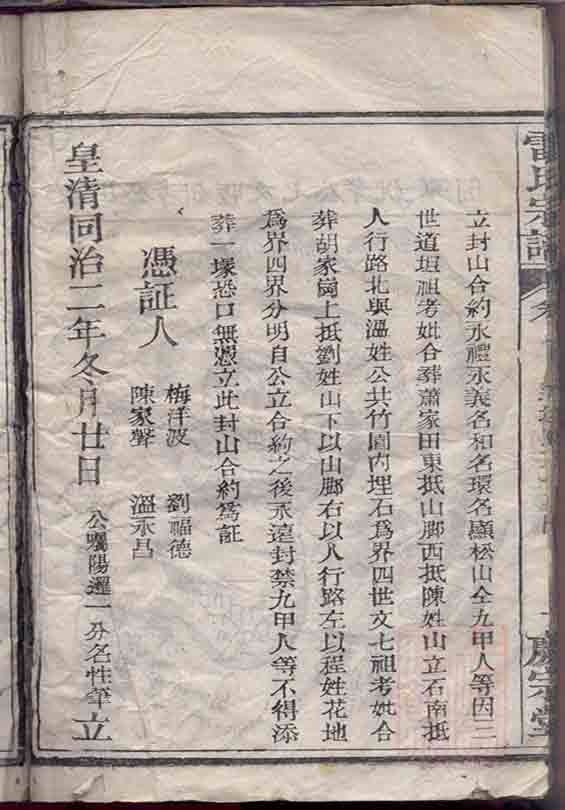 雷氏宗譜
慶宗堂
立封山合約永禮永義名和名環名顯松山仝九甲人等因三
世道垣祖考妣合葬蕭家田東抵山脚西抵陳姓山立石南抵
人行路北與溫姓公共竹園內埋石爲界四世文七祖考妣合
葬胡家崗上抵劉姓山下以山脚右以人行路左以程姓花地
爲界四界分明自公立合約之後永遠封禁九甲人等不得添
葬一塚恐口無憑立此封山合約爲証
梅洋波 劉福德
憑証人
陳家聲 溫永昌
皇清同治二年冬月廿日 公囑陽邏一分名性筆立